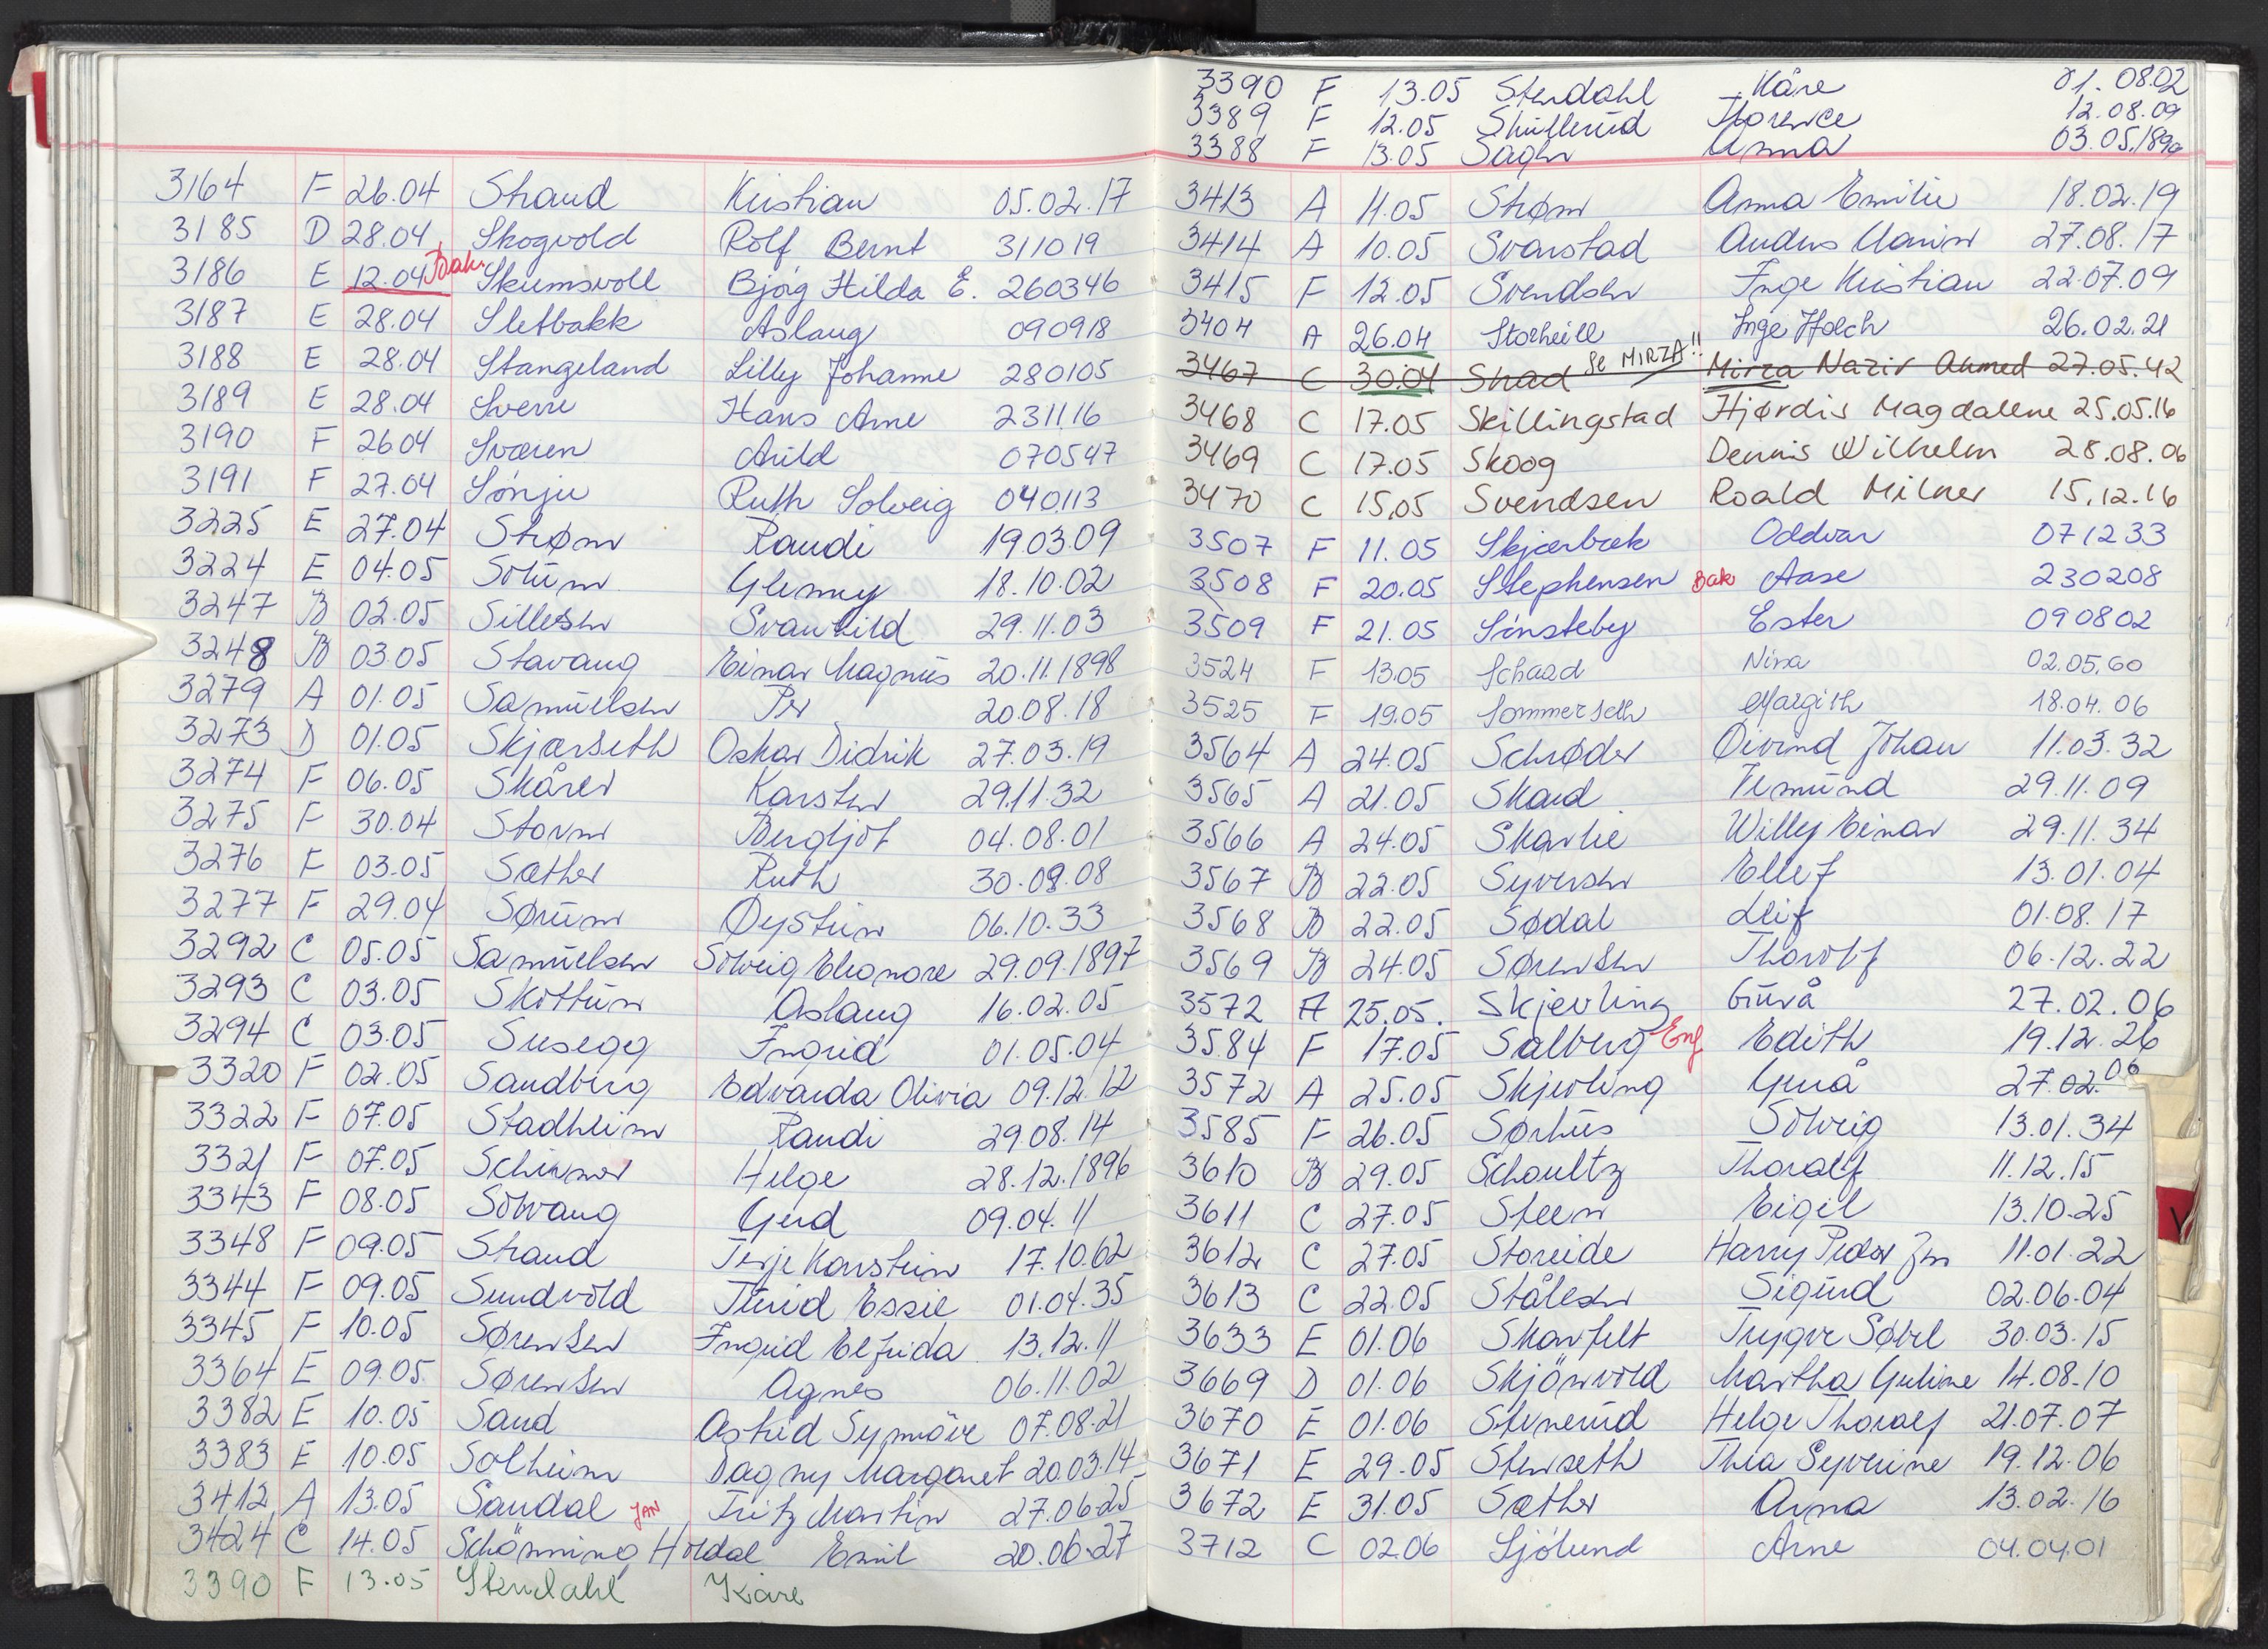 3164 F 26.04 Strand Kristian 05.02.17
3185 D 28.04 Skogvold Rolf Bernt 311019
3186 E 12.04 Bak Skumsvoll Bjørg Hilda E. 260346
3187 E 28.04 Sletbakk Aslaug 090918
3188 E 28.04 Stangeland Lilly Johanne 280105
3189 E 28.04 Sverre Hans Arne 231116
3190 F 2604 Sværen Arild 070547
3191 F 27.04 Sönju Ruth Solveig 040113
3225 E 27.04 Strøm Randi 19.03.09
3224 E 04.05 Solum Glenny 18.10.02
3247 B 02.05 Sillesen Svanhild 29.11.03
3248 B 03.05 Stavang Einar Magnus 20.11.1898
3279 A 01.05 Samuelsen Per 20.08.18
3273 D 01.05 Skjærseth Oskar Didrik 27.03.19
3274 F 06.05 Skårer Karsten 29.11.32
3275 F 30.04 Storm Bergljot 04.08.01
3276 F 03.05 Sæther Ruth 30.09.08
3277 F 29.04 Sørum Øystein 06.10.33
3292 C 05.05 Samuelsen Solveig Eleonore 29.09.1897
3293 C 03.05 Skottun Aslaug 16.02.05
3294 C 03.05 Susegg Ingrid 01.05.04
3320 F 02.05 Sandberg Edvarda Olivia 09.12.12
3322 F 07.05 Stadheim Randi 29.08.14
3321 F 07.05 Schirmer Helge 28.12.1896
3343 F 08.05 Solvang Gerd 09.04.11
3348 F 09.05 Strand Terje Karstein 17.10.62
3344 F 09.05 Sundvold Turid Essie 01.04.35
3345 F 10.05 Sørensen Ingrid Elfrida 13.12.11
3364 E 09.05 Sørensen Agnes 06.11.02
3382 E 10.05 Sand Astrid Synnöve 07.08.21
3383 E 10.05 Solheim Dagny Margaret 20.03.14
3412 A 13.05 Sandal JAN Fritz Martin 27.06.25
3424 C 14.05 Schönning Holdal Emil 20.06.27
3390 F 13.05 Stendahl Kåre
3390 F 13.05 Stendahl Kåre 01.08.02
3389 F 12.05 Skullerud Florence 12.08.09
3388 F 13.05 Sagen Anna 03.05.1899
3413 A 11.05 Strøm Anna Emilie 18.02.19
3414 A 10.05 Svarstad Anders Marius 27.08.17
3415 F 12.05 Svendsen Inge Kristian 22.07.09
3404 A 26.04 Storheill Inge Holch 26.02.21
3467 C 30.04 Shad Se MIRZA!! Mirza Nazir Ahmed 27.05.42
3468 C 17.05 Skillingstad Hjørdis Magdalene 25.05.16
3469 C 17.05 Skoog Dennis Wilhelm 28.08.06
3470 C 15.05 Svendsen Roald Milner 15.12.16
3507 F 11.05 Skjærbæk Oddvar 071233
3508 F 20.05 Stephensen Bak Aase 230208
3509 F 21.05 Sinsteby Ester 090802
3524 F 13.05 Schaad Nina 02.05.60
3525 F 19.05 Sommerseth Margith 18.04.06
3564 A 24.05 Schrøder Øivind Johan 11.03.32
3565 A 21.05 Skard 29.11.09
3566 A 24.05 Skarlie Willy Einar 29.11.34
3567 B 22.05 Syversen Ellef 13.01.04
3568 B 22.05 Sødal Leif 01.08.17
3569 B 24.05 Sørensen Thorolf 06.12.22
3572 A 25.05. Skjevling Gurå 27.02.06
3584 F 17.05 Salberg Enf Edith 19.12.26
3572 A 25.05 Skjevling Gurå 27.02.06
3585 F 26.05 Sørhus Solveig 13.01.34
3610 B 29.05 Schoultz Thoralf 11.12.15
3611 C 27.05 Steen Eigil 13.10.25
3612 C 27.05 Storeide Harry Peder Jm 11.01.22
3613 C 22.05 Stålesen Sigurd 02.06.04
3633 E 01.06 Skarfelt Trygve Søbel 30.03.15
3669 D 01.06 Skjönvold Martha Guline 14.08.10
3670 E 01.06 Stenerud Helge Thoralf 21.07.07
3671 E 29.05 Stenseth Thea Syverine 19.12.06
3672 E 31.05 Sæther Arna 13.02.16
3712 C 02.06 Sjölund Arne 04.04.01